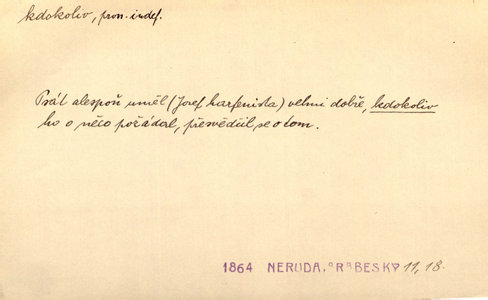 kdokoliv, pron. indef.
Psát alespoň uměl (Josef harfenista) velmi dobře, kdokoliv
ho o něco požádal, přesvědčil se o tom.
1864 NERUDA, ARABESKY 11, 18.